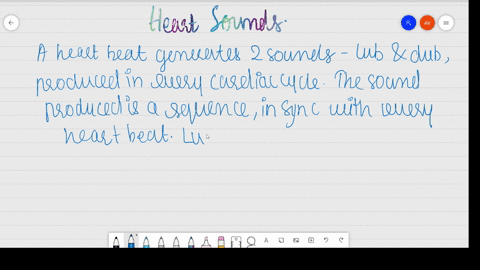 Heart Sounds.
A heart beat generates 2 sounds - lub & dub,
produced in every cardiac cycle. The sound
produced is a sequence, in sync with every
heart beat. Lu